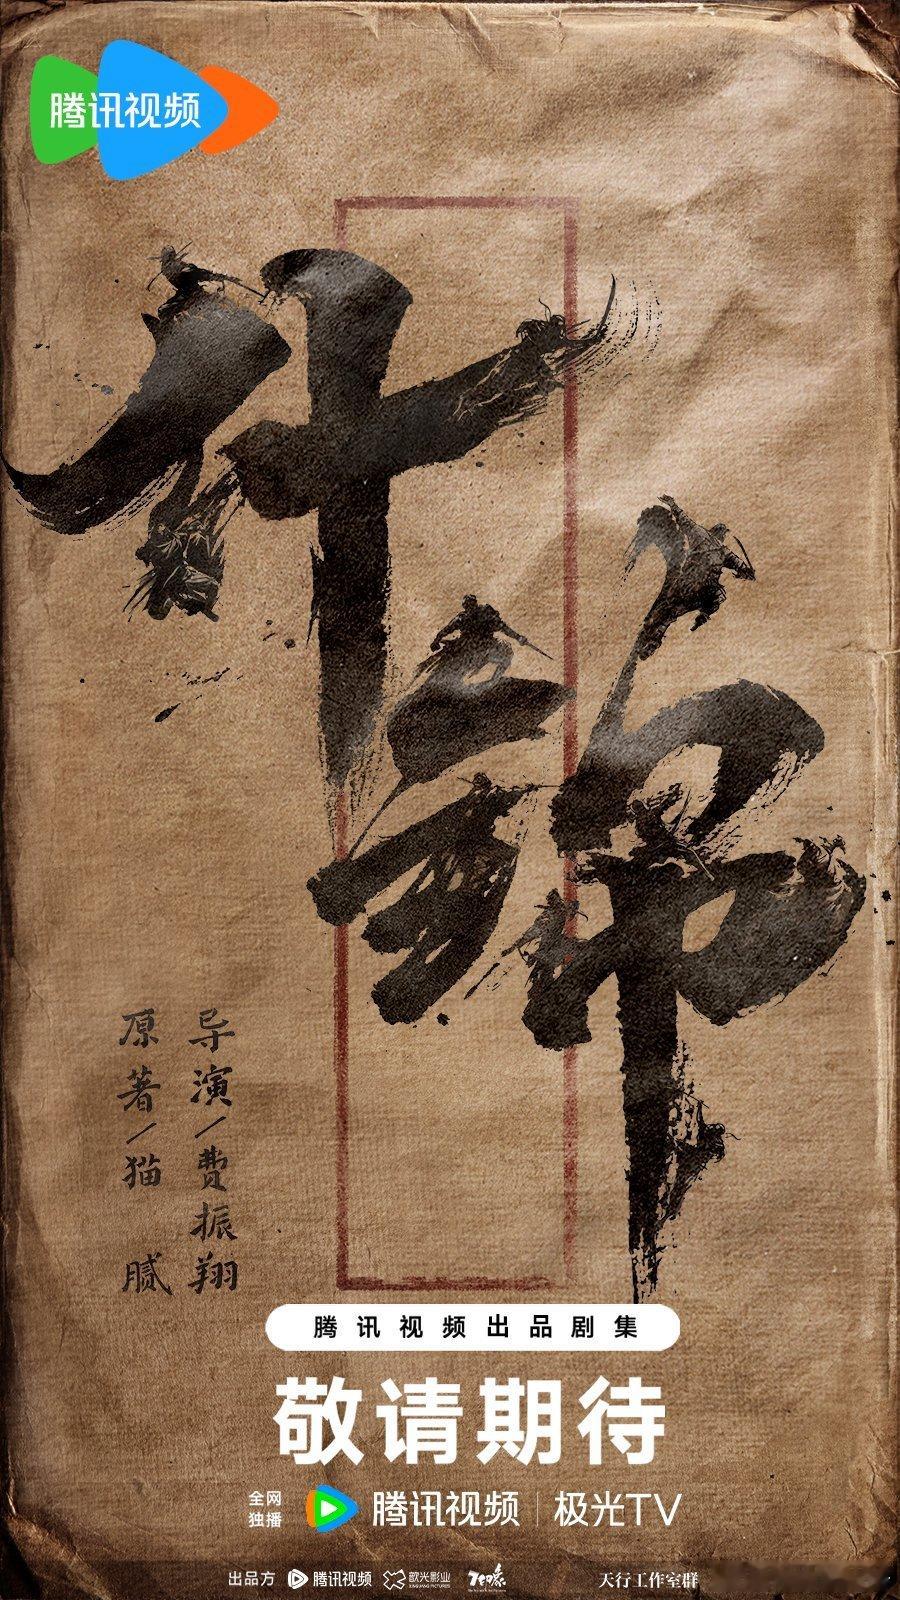 腾讯视频
什锦
导演/费振翔
原著/猫腻
腾讯视频出品剧集
敬请期待
全网独播
腾讯视频 | 极光TV
出品方 腾讯视频 歆光影业 天行工作室群
XINGUANG PICTURES